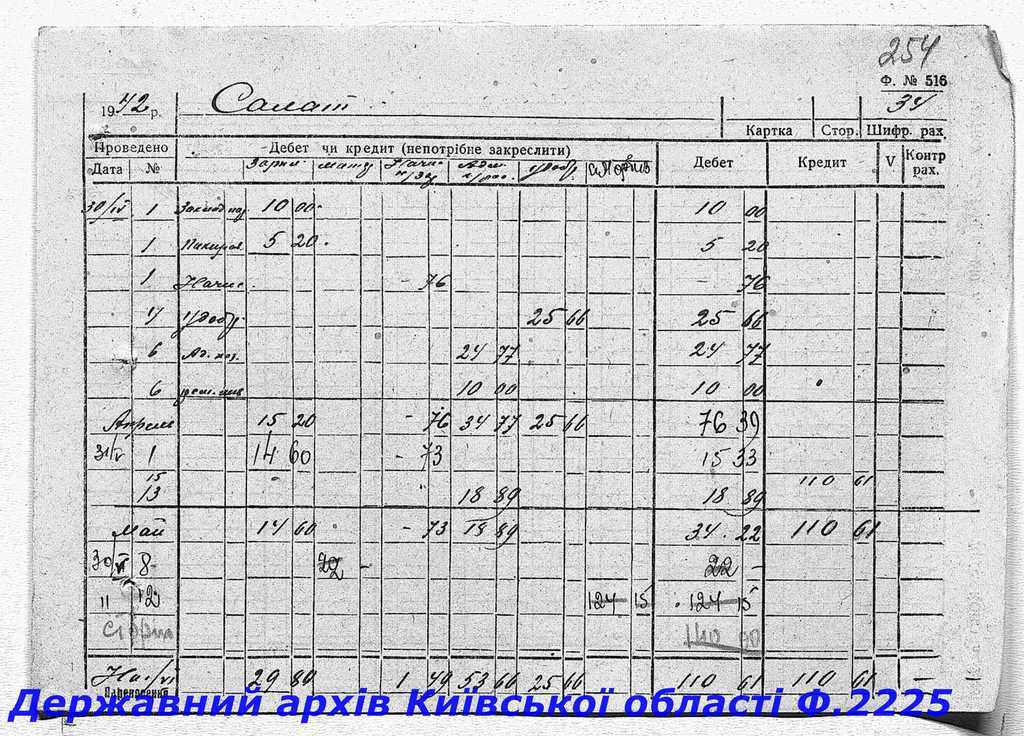 254
Ф. № 516
1942 р. Салат 34
Картка Стор. Шифр. рах.
Проведено Дебет чи кредит (непотрібне закреслити) Дебет Кредит V Контр рах.
Дата №
30/IV 1 10 00 10 00
1 5 20 5 20
1 Начис. - 76 - 76
4 удобр. 25 66 25 66
6 24 77 24 77
6 10 00 10 00
Апрель 15 20 - 76 34 77 25 66 76 39
31/V 1 14 60 - 73 15 33
15 110 61
13 18 89 18 89
Май 14 60 - 73 18 89 34 22 110 61
30/VI 8 22 - 22 -
" 12 124 15 124 15
На 1/VI 29 80 1 49 53 66 25 66 110 61 110 61 — —
Державний архів Київської області Ф.2225